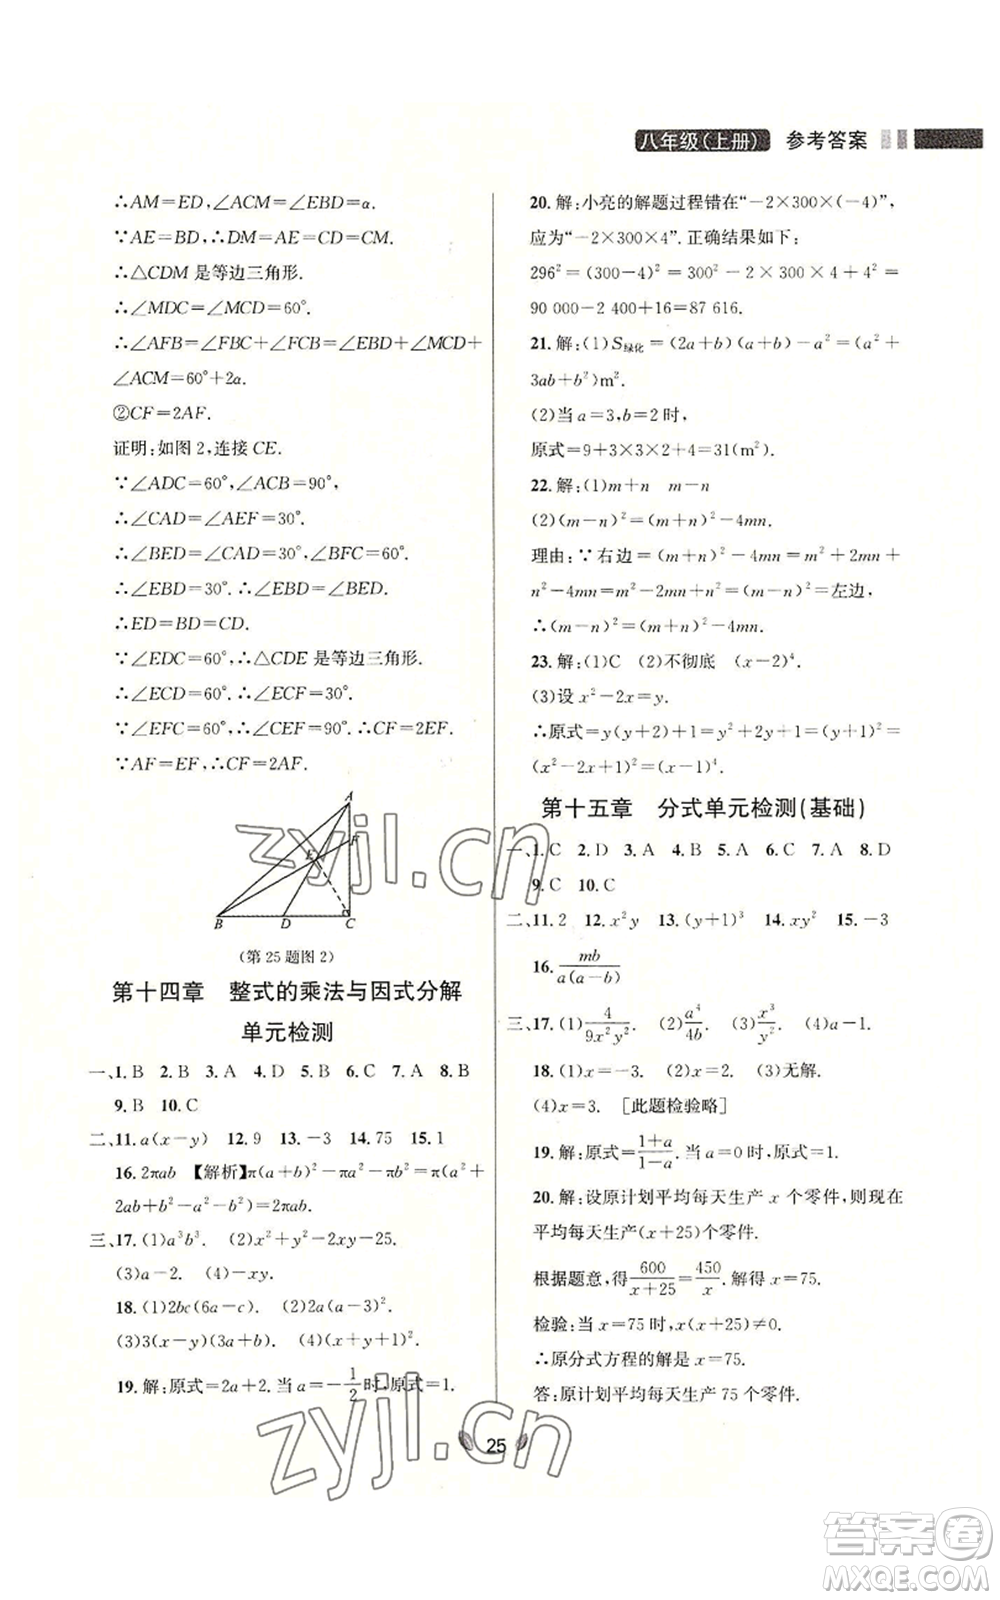 八年级(上册) 参考答案
∴AM=ED,∠ACM=∠EBD=α.
∵AE=BD,∴DM=AE=CD=CM.
∴△CDM是等边三角形.
∴∠MDC=∠MCD=60°.
∴∠AFB=∠FBC+∠FCB=∠MCD+
∠ACM=60°+2α.
②CF=2AF.
证明:如图2,连接CE.
∵∠ADC=60°,∠ACB=90°,
∴∠CAD=∠AEF=30°.
∴∠BED=∠CAD=30°,∠BFC=60°.
∴∠EBD=30°.∴∠EBD=∠BED.
∴ED=BD=CD.
∵∠EDC=60°,∴△CDE是等边三角形.
∴∠ECD=60°.∴∠ECF=30°.
∵∠EFC=60°,∴∠CEF=90°.∴CF=2EF.
∵AF=EF,∴CF=2AF.
A
F
E
B D C
(第25题图2)
第十四章 整式的乘法与因式分解
单元检测
一、1.B 2.B 3.A 4.D 5.B 6.C 7.A 8.B
9.B 10.C
二、11.a(x-y) 12.9 13.-3 14.75 15.1
16.2πab 【解析】π(a+b)²-πa²-πb²=π(a²+
2ab+b²-a²-b²)=2πab.
三、17.(1)a³b³. (2)x²+y²-2xy-25.
(3)a-2. (4)-xy.
18.(1)2bc(6a-c). (2)2a(a+2).
(3)3(x-y)(3a+b). (4)(x+y)²(x-y)².
19.解:原式=2a+2.当a=-1/2时,原式=1.
20.解:小亮的解题过程错在“-2×300×(-4)”,
应为“-2×300×4”.正确结果如下:
296²=(300-4)²=300²-2×300×4+4²=
90 000-2 400+16=87 616.
21.解:(1)S绿化=(2a+b)(a+b)-a²=(a²+
3ab+b²)m².
(2)当a=3,b=2时,
原式=9+3×3×2+4=31(m²).
22.解:(1)m+n m-n
(2)(m-n)²=(m+n)²-4mn.
理由:∵右边=(m+n)²-4mn=m²+2mn+
n²-4mn=m²-2mn+n²=(m-n)²=左边,
∴(m-n)²=(m+n)²-4mn.
23.解:(1)C (2)不彻底 (x-2)⁴.
(3)设x²-2x=y.
∴原式=y(y+2)+1=y²+2y+1=(y+1)²=
(x²-2x+1)²=(x-1)⁴.
第十五章 分式单元检测(基础)
一、1.C 2.D 3.A 4.B 5.A 6.C 7.A 8.D
9.C 10.C
二、11.2 12.x²y 13.(y+1)³ 14.x/y² 15.-3
16.mb/a(a-b)
三、17.(1)4/9x²y². (2)a⁴/4b. (3)x³/y². (4)-a.
18.(1)x=-3. (2)x=2. (3)无解.
(4)x=3. [此题检验略]
19.解:原式=1+a/1-a.当a=0时,原式=1.
20.解:设原计划平均每天生产x个零件,则现在
平均每天生产(x+25)个零件.
根据题意,得600/x+25=450/x.解得x=75.
检验:当x=75时,x(x+25)≠0.
∴原分式方程的解是x=75.
答:原计划平均每天生产75个零件.
25
zyjl.cn
zyjl.cn
答案圈
MXQE.COM